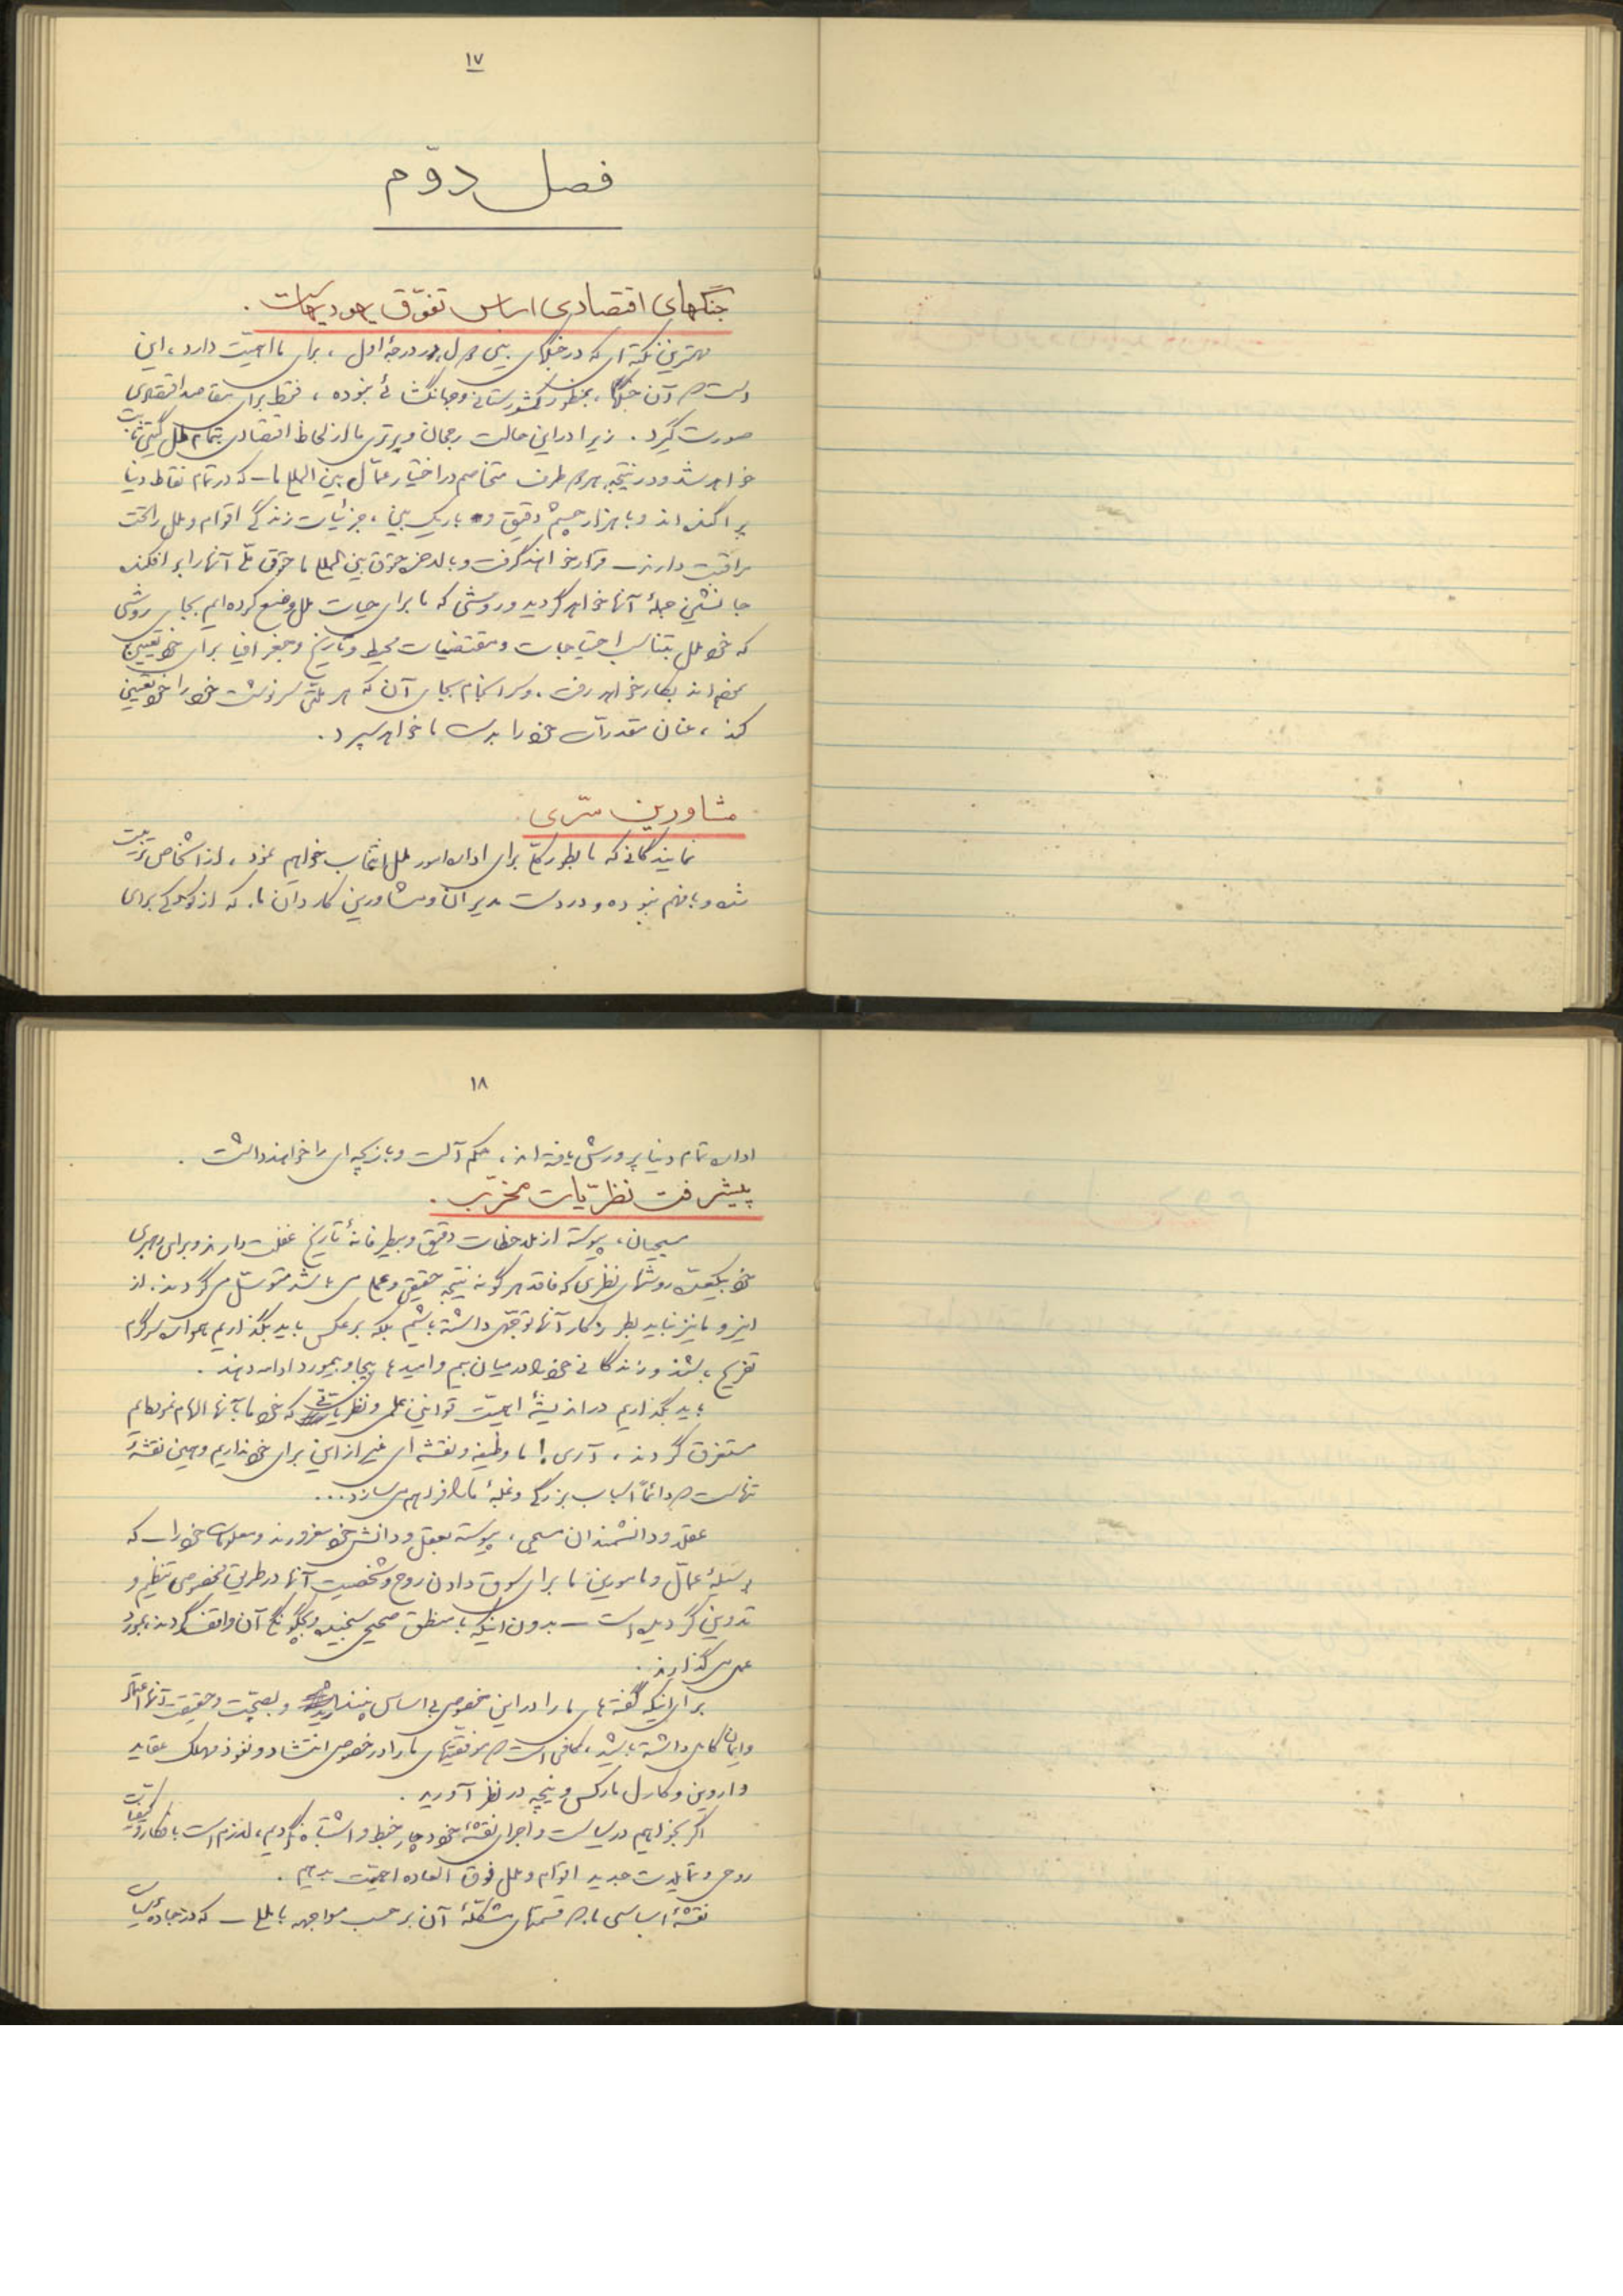 ۱۷
فصل دوّم
جنگهای اقتصادی اساس تفوّق یهودیهاست.
مهمترین نکته‌ای که در جنگهای بین ملل، در درجهٔ اول، برای ما اهمیّت دارد، این
است که آن جنگها، بمنظور کشورستانی و جهانگشائی نبوده، فقط برای مقاصد اقتصادی
صورت گیرد. زیرا در این حالت رجحان و برتری ما از لحاظ اقتصادی بتمام ملل گیتی ثابت
خواهد شد و در نتیجه هر دو طرف متخاصم در اختیار عمّال بین المللی ما ـ که در تمام نقاط دنیا
پراکنده‌اند و با هزار چشم دقیق و باریک بین، جزئیات زندگی اقوام و ملل را تحت
مراقبت دارند ـ قرار خواهند گرفت و بالاخره حقوق بین المللی ما حقوق ملّی آنها را بر افکنده
جانشین جملهٔ آنها خواهد گردید و روشی که ما برای حیات ملل وضع کرده‌ایم بجای روشی
که خود ملل بتناسب احتیاجات و مقتضیات محیط و تاریخ و جغرافیا برای خود تعیین
نموده‌اند بکار خواهد رفت. و سرانجام بجای آن که هر ملّتی سرنوشت خود را خود تعیین
کند، عنان مقدرات خود را بدست ما خواهد سپرد.
مشاورین سّری.
نمایندگانی که ما بطور کلّی برای اداره امور ملل انتخاب خواهیم نمود، از اشخاص تربیت
شده و بافهم نبوده و در دست مدیران و مشاورین کاردان ما، که از کودکی برای
۱۸
اداره تمام دنیا پرورش یافته‌اند، حکم آلت و بازیچه‌ای را خواهند داشت.
پیشرفت نظرّیات مخرّب.
مسیحیان، پیوسته از ملاحظات دقیق و بیطرفانهٔ تاریخ غفلت دارند و برای رهبری
خود بیکعدّه روشهای نظری که فاقد هر گونه نتیجه حقیقی و عملی می باشد متوسّل می گردند. از
اینرو ما نیز نباید بطرز کار آنها توجّهی داشته باشیم بلکه بر عکس باید بگذاریم همواره سرگرم
تفریح باشند و زندگانی خود را در میان بیم و امیدهای بیجا و بیمورد ادامه دهند.
باید بگذاریم در اندیشهٔ اهمیّت قوانین علمی و نظریاتی که خود ما بآنها الهام نموده‌ایم
مستغرق گردند. آری! ما وظیفه و نقشه‌ای غیر از این برای خود نداریم و همین نقشهٔ
تنهاست که دائماً اسباب بزرگی و غلبهٔ ما را فراهم می سازد...
عقلاء و دانشمندان مسیحی، پیوسته بعقل و دانش خود مغرورند و معلومات خود را ـ که
بوسیلهٔ عمّال و مامورین ما برای سوق دادن روح و شخصیت آنها در طریق مخصوصی تنظیم و
تدوین گردیده است ـ بدون اینکه با منطق صحیحی سنجیده و بچگونگی آن واقف گردند، بمورد
عمل می گذارند.
برای اینکه گفته های ما را در این خصوص بی اساس نپندارید و بصحّت و حقیقت آنها اعتماد
و ایمان کامل داشته باشید، کافی است که موفقیّتهای ما را در خصوص انتشار و نفوذ مهلک عقاید
داروین و کارل مارکس و نیچه در نظر آورید.
اگر بخواهیم در سیاست و اجرای نقشهٔ خود دچار خبط و اشتباه نگردیم، لازم است بافکار و کیفیات
روحی و تمایلات جدید اقوام و ملل فوق العاده اهمیّت بدهیم.
نقشهٔ اساسی ما که قسمتهای متشکّلهٔ آن بر حسب مواجهه با مللی ـ که در جادهٔ سیاسی